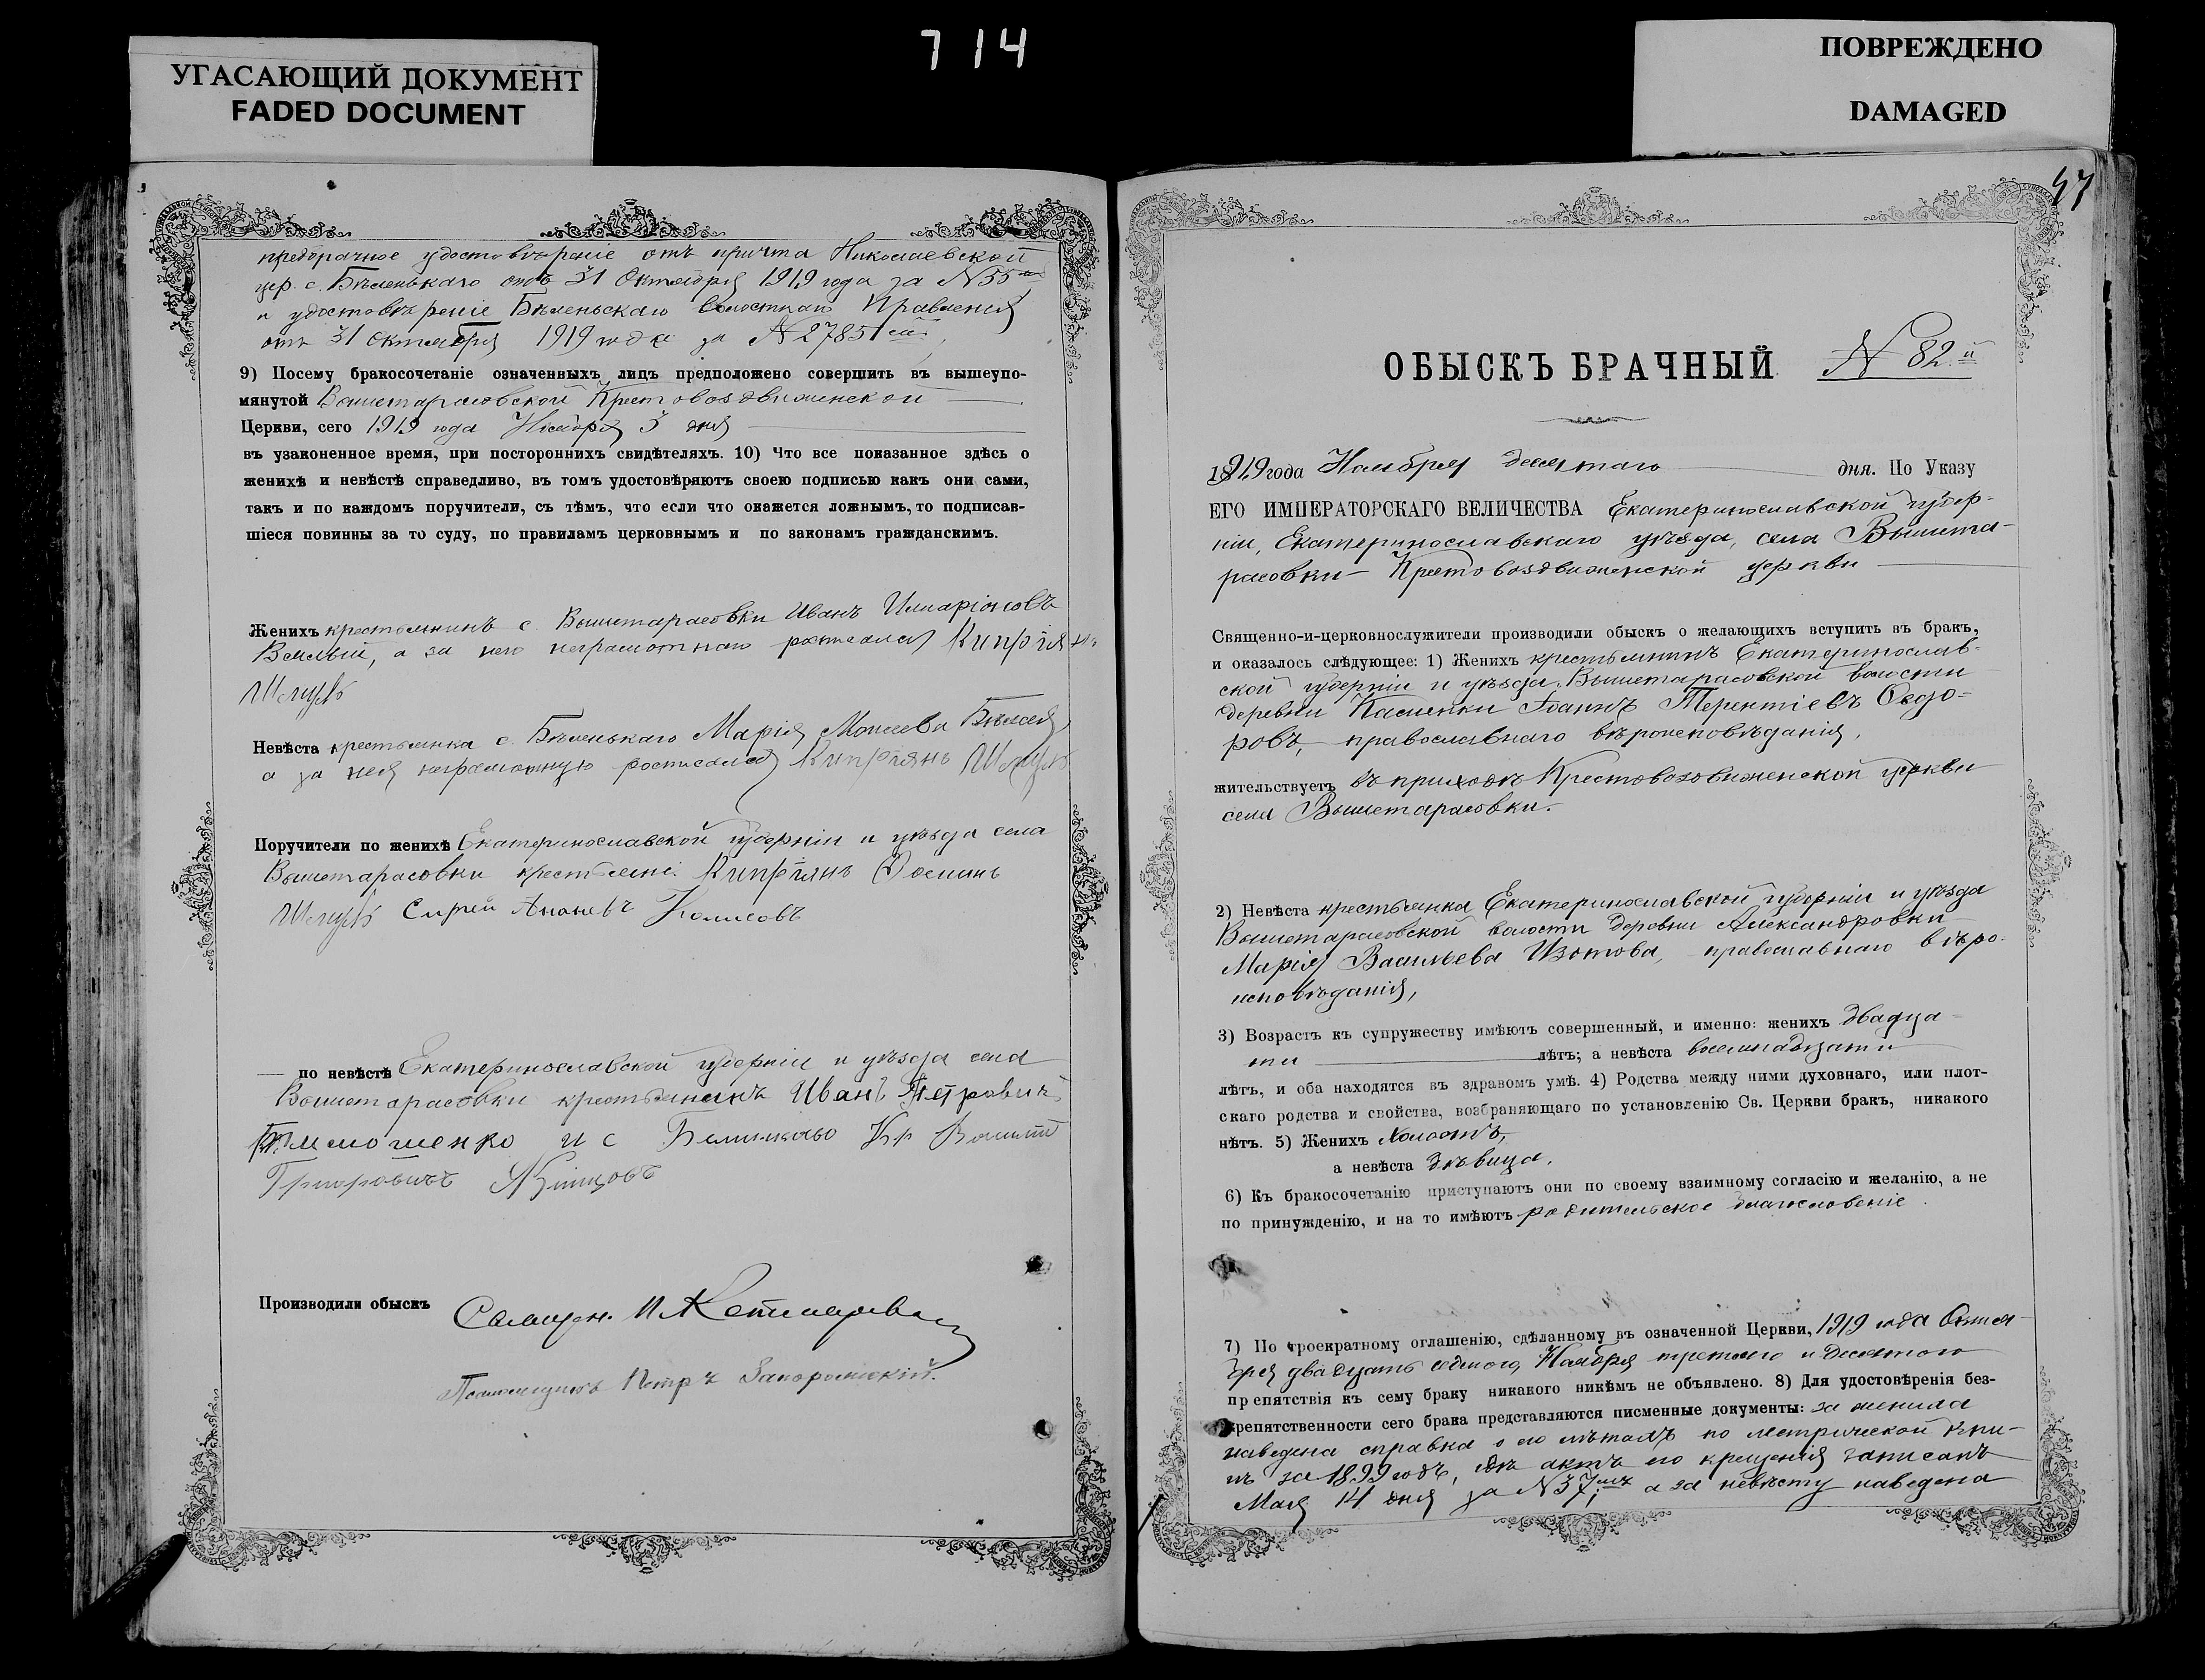 714
УГАСАЮЩИЙ ДОКУМЕНТ
FADED DOCUMENT
ПОВРЕЖДЕНО
DAMAGED
предбрачное удостовѣреніе отъ причта Николаевской
цер. с. Бѣленькаго отъ 31 Октября 1919 года за N 55
и удостовѣреніе Бѣленьскаго волостнаго Правленія
отъ 31 Октября 1919 года за N 2785
9) Посему бракосочетаніе означенныхъ лицъ предположено совершить въ вышеупо-
мянутой Вышетарасовской Крестовоздвиженской
Церкви, сего 1919 года Ноября 3 дня
въ узаконенное время, при постороннихъ свидѣтеляхъ. 10) Что все показанное здѣсь о
женихѣ и невѣстѣ справедливо, въ томъ удостовѣряютъ своею подписью какъ они сами,
такъ и по каждомъ поручители, съ тѣмъ, что если что окажется ложнымъ, то подписав-
шіеся повинны за то суду, по правиламъ церковнымъ и по законамъ гражданскимъ.
Женихъ крестьянинъ с. Вышетарасовки Иванъ Иларіоновъ
а за него неграмотнаго росписался Кипріянъ
Невѣста крестьянка с. Бѣленькаго Марія Моисеева
а за нея неграмотную росписался Кипріянъ
Поручители по женихѣ Екатеринославской губерніи и уѣзда села
Вышетарасовки крестьяне: Кипріянъ
Ананевъ
по невѣстѣ Екатеринославской губерніи и уѣзда села
Вышетарасовки крестьянинъ Иванъ Петровичъ
и с
Григоровичъ
Производили обыскъ Священ.
Псаломщикъ Петръ Запорожскій.
47
ОБЫСКЪ БРАЧНЫЙ N 82й
1919 года Ноября десятаго дня. По Указу
ЕГО ИМПЕРАТОРСКАГО ВЕЛИЧЕСТВА Екатеринославской губер-
ніи, Екатеринославскаго уѣзда, села Вышета-
расовки Крестовоздвиженской церкви
Священно-и-церковнослужители производили обыскъ о желающихъ вступить въ бракъ,
и оказалось слѣдующее: 1) Женихъ крестьянинъ Екатеринослав-
ской губерніи и уѣзда Вышетарасовской волости
деревни Каменки Іоаннъ Терентіевъ Ѳедо-
ровъ, православнаго вѣроисповѣданія,
жительствуетъ въ приходѣ Крестовоздвиженской церкви
села Вышетарасовки.
2) Невѣста крестьянка Екатеринославской губерніи и уѣзда
Вышетарасовской волости деревни Александровки
Марія Васильева Изотова, православнаго вѣро-
исповѣданія,
3) Возрастъ къ супружеству имѣютъ совершенный, и именно: женихъ двадца-
ти лѣтъ; а невѣста восемнадцати
лѣтъ, и оба находятся въ здравомъ умѣ. 4) Родства между ними духовнаго, или плот-
скаго родства и свойства, возбраняющаго по установленію Св. Церкви бракъ, никакого
нѣтъ. 5) Женихъ холостъ,
а невѣста дѣвица.
6) Къ бракосочетанію приступаютъ они по своему взаимному согласію и желанію, а не
по принужденію, и на то имѣютъ родительское благословеніе.
7) По троекратному оглашенію, сдѣланному въ означенной Церкви, 1919 года Октя-
бря двадцать седьмого, Ноября третьяго и десятого
препятствія къ сему браку никакого никѣмъ не объявлено. 8) Для удостовѣренія без-
препятственности сего брака представляются писменные документы: за жениха
наведена справка о его лѣтахъ по метрической кни-
гѣ за 1899 годъ, гдѣ актъ его крещенія записанъ
Мая 14 дня за N 37; а за невѣсту наведена